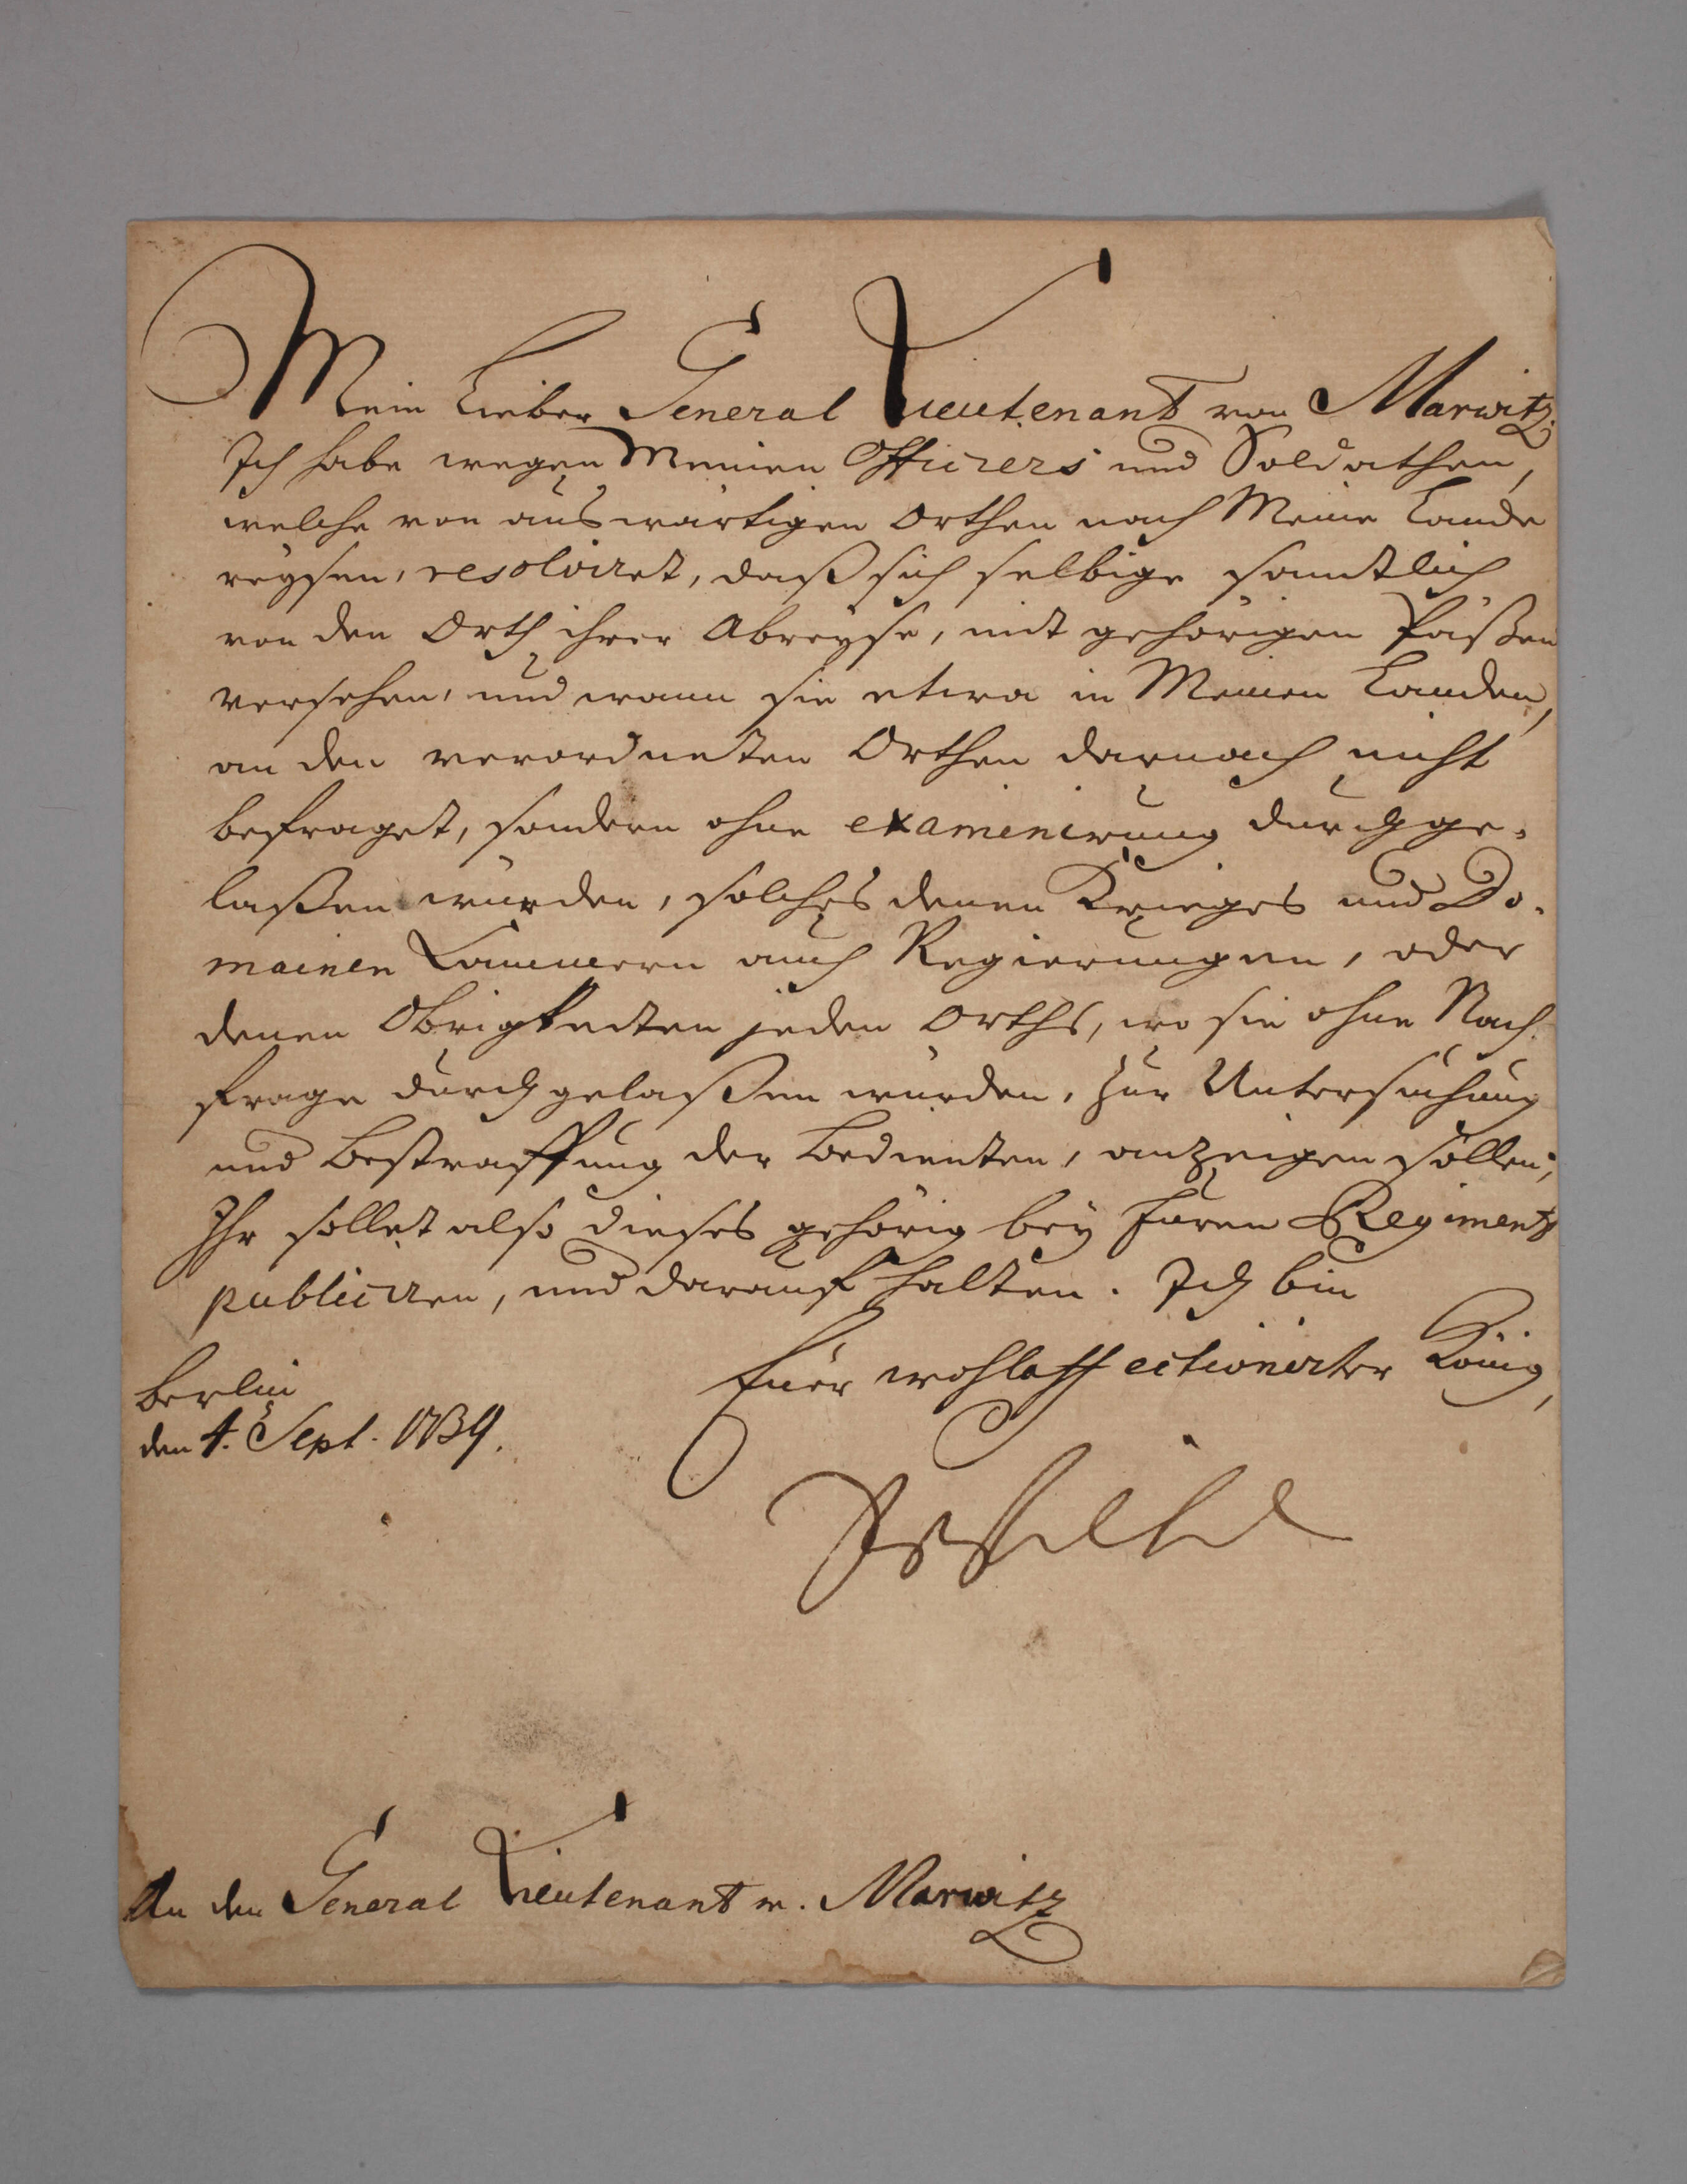 Mein Lieber General Lieutenant von Marwitz.
Ich habe wegen Meinen Officiers und Soldathen,
welche von auswärtigen Orthen nach Meine Lande
reysen, resolviret, daß sich selbige samtlich
von den Orth ihrer Abreyse, mit gehörigen Päßen
versehen, und wann sie etwa in Meinen Landen,
an den verordneten Orthen darnach nicht
befraget, sondern ohne examinirung durchge-
laßen würden, solches denen Krieges und Do-
mainen Cammern auch Regierungen, oder
denen Obrigkeiten jeden Orths, wo sie ohne Nach-
frage durchgelaßen würden, zur Untersuchung
und Bestraffung der Bedienten, anzeigen sollen;
Ihr sollet also dieses gehörig bey Euren Regiment
publiciren, und darauf halten. Ich bin
Euer wohlaffectionirter König,
Berlin
den 4. Sept. 1739.
An den General Lieutenant v. Marwitz